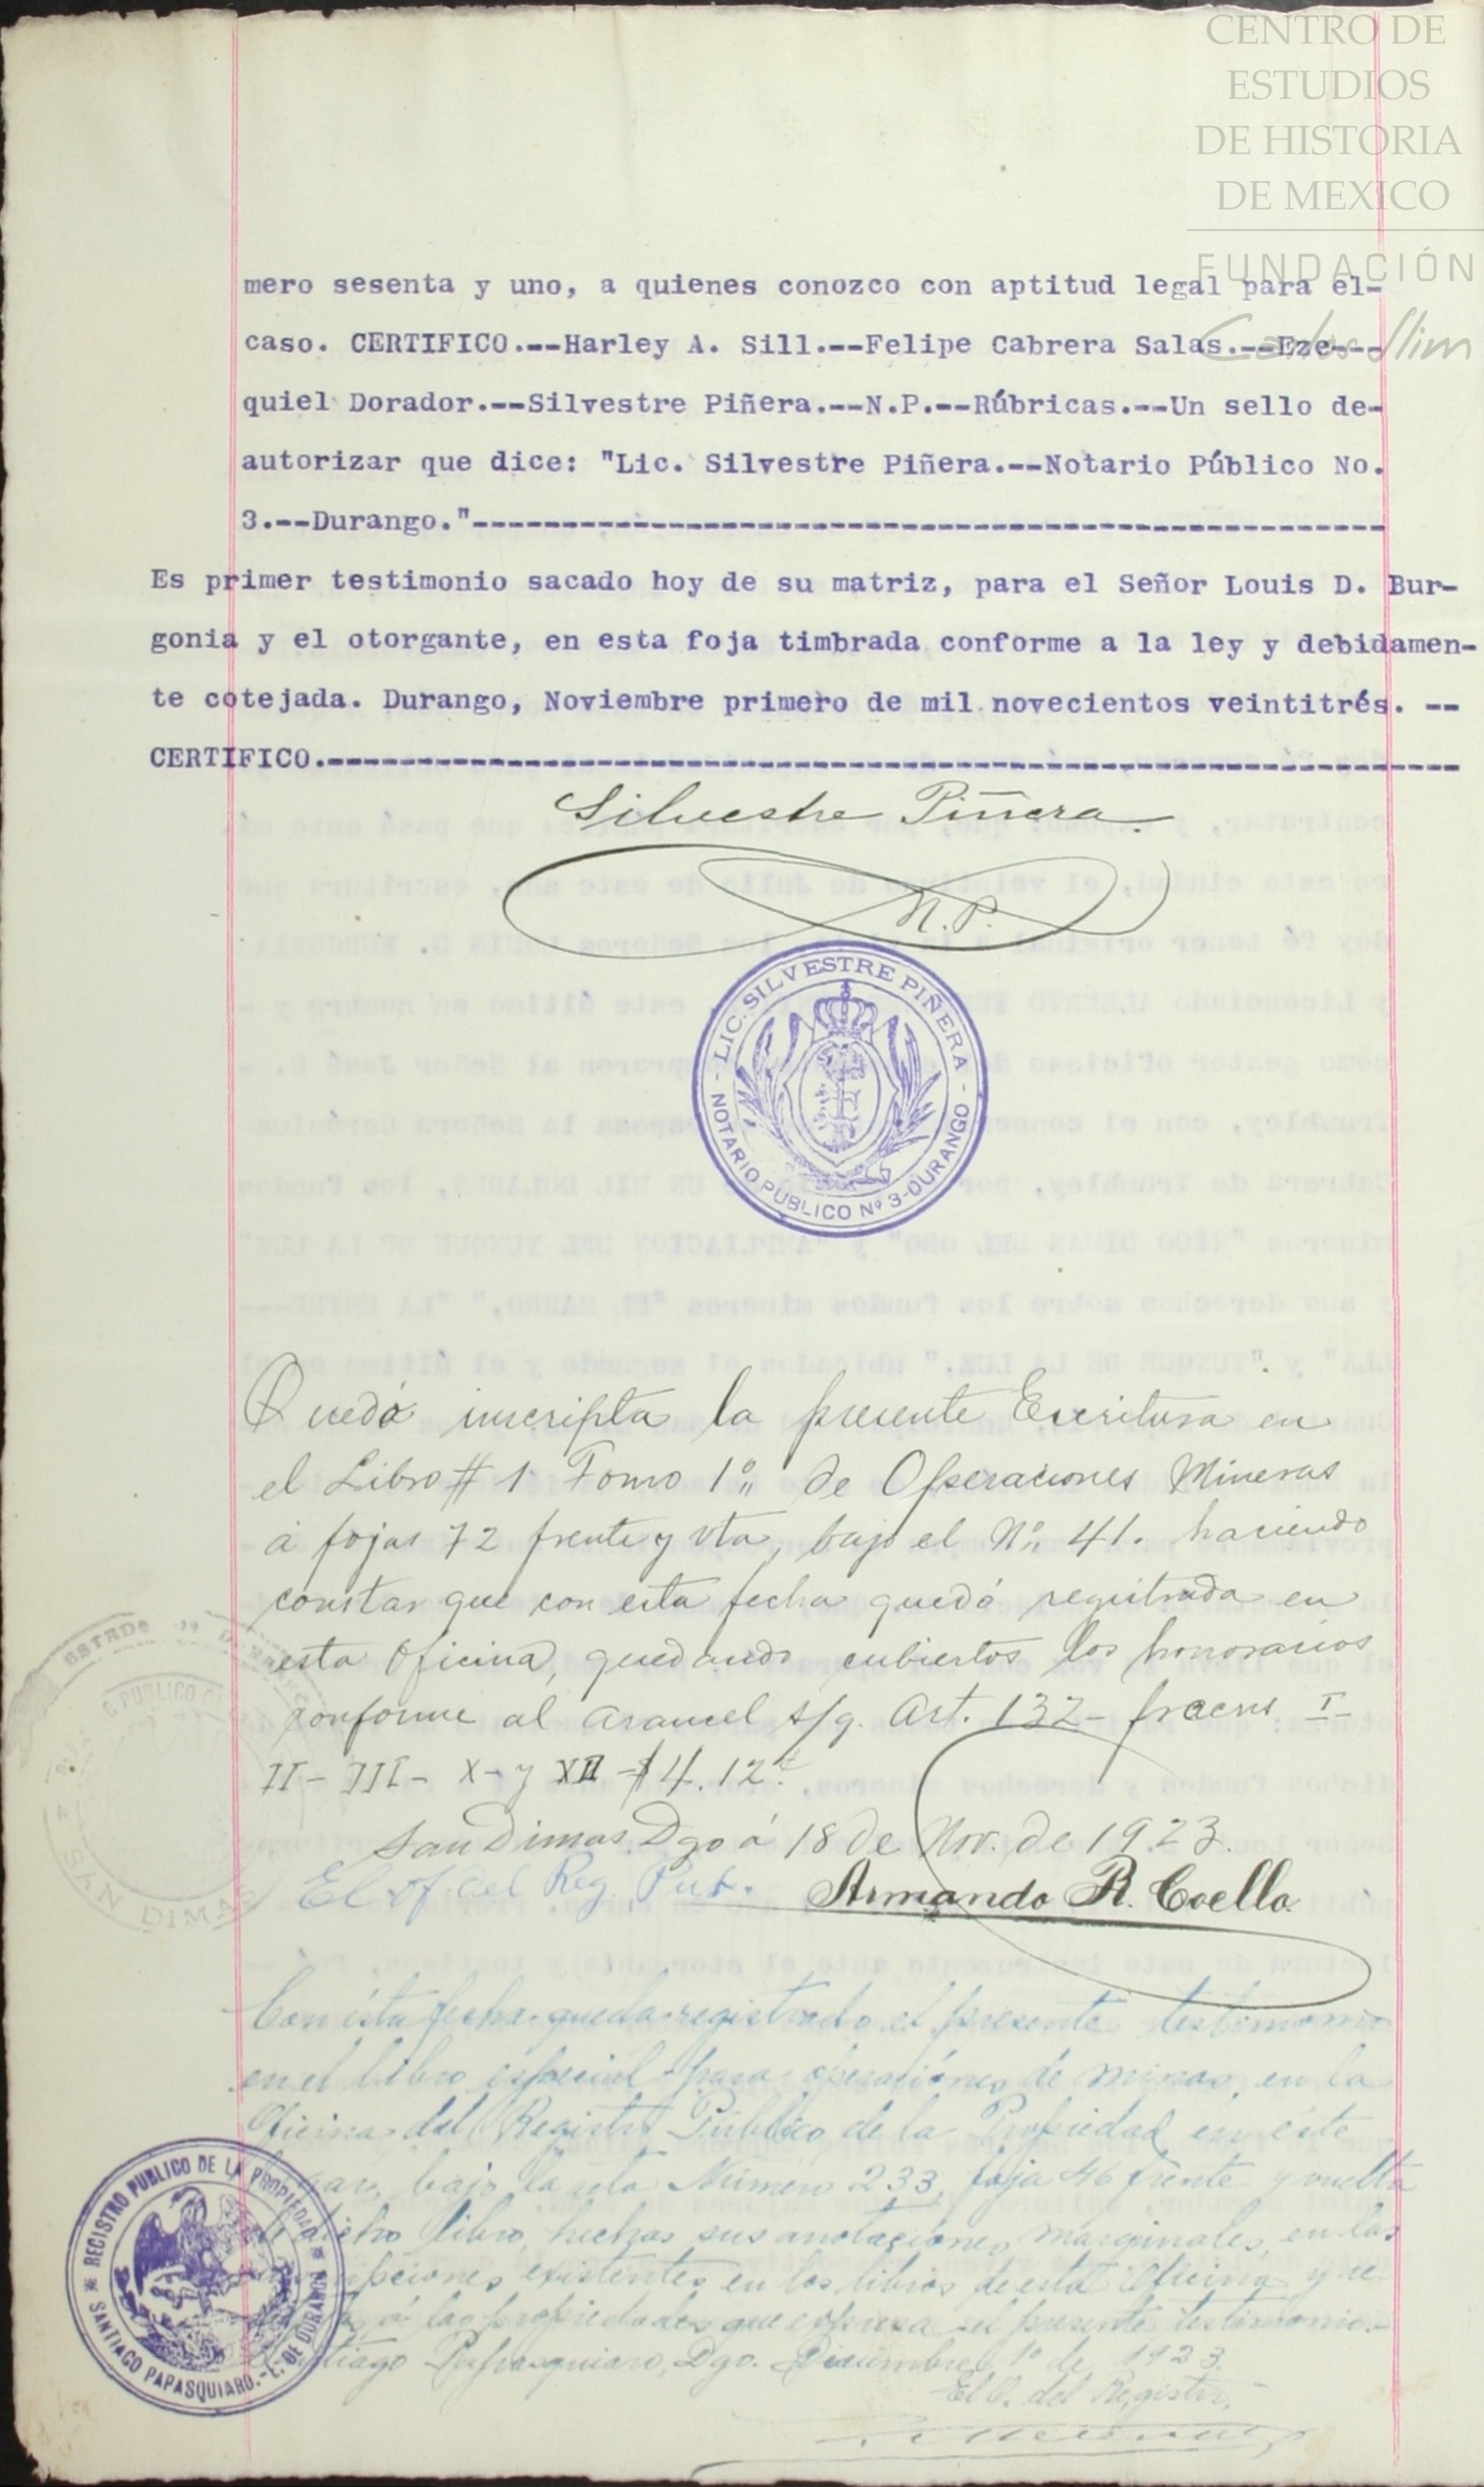 CENTRO DE
ESTUDIOS
DE HISTORIA
DE MEXICO
FUNDACIÓN
Carlos Slim
mero sesenta y uno, a quienes conozco con aptitud legal para el-
caso. CERTIFICO.--Harley A. Sill.--Felipe Cabrera Salas.--Eze---
quiel Dorador.--Silvestre Piñera.--N.P.--Rúbricas.--Un sello de-
autorizar que dice: "Lic. Silvestre Piñera.--Notario Público No.
3.--Durango."--------------------------------------------------
Es primer testimonio sacado hoy de su matriz, para el Señor Louis D. Bur-
gonia y el otorgante, en esta foja timbrada conforme a la ley y debidamen-
te cotejada. Durango, Noviembre primero de mil novecientos veintitrés. --
CERTIFICO.---------------------------------------------------------------
Silvestre Piñera.
N.P.
LIC. SILVESTRE PIÑERA
- NOTARIO PUBLICO Nº 3-DURANGO -
Quedó inscripta la presente Escritura en
el Libro # 1 Tomo 1º de Operaciones Mineras
á fojas 72 frente y vta, bajo el Nº 41. haciendo
constar que con esta fecha quedó registrada en
esta Oficina, quedando cubiertos los honorarios
conforme al arancel s/g. Art. 132- I-
II- III- X- y XII -$4.12
San Dimas Dgo á 18 de Nov. de 1923.
El of. del Reg. Pub. Armando R. Coella
ESTADO DE
PUBLICO
SAN DIMAS
Con ésta fecha queda registrado el presente testimonio
en el libro especial para operaciones de minas, en la
Oficina del Registro Público de la Propiedad en este
bajo la Número 233, foja 46 frente y vuelta
libro, hechas sus anotaciones marginales, en las
existentes en los libros de esta Oficina y
á las propiedades que expresa el presente testimonio.-
Papasquiaro, Dgo. Diciembre 1º de 1923.
El O. del Registro,
REGISTRO PUBLICO DE LA PROPIEDAD
SANTIAGO PAPASQUIARO.-E. DE DURANGO